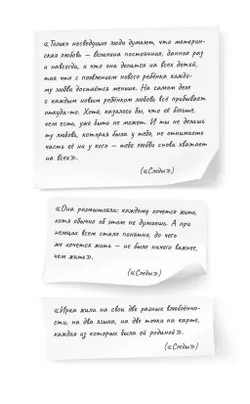 «Только несведущие люди думают, что материн-
ская любовь – величина постоянная, данная раз
и навсегда, и что она делится на всех детей,
так что с появлением нового ребёнка каждо-
му любви достаётся меньше. На самом деле
с каждым новым ребёнком любовь всё прибывает
откуда-то. Хотя, казалось бы, что её больше,
чем есть, уже быть не может. И ты не делишь
ту любовь, которая была у тебя, не отнимаешь
часть её ни у кого – тебе любви снова хватает
на всех».
(«Следы»)
«Она размышляла: каждому хочется жить,
хотя обычно об этом не думаешь. А при
немцах всем стало понятно, до чего
же хочется жить – не было ничего важнее,
чем жить».
(«Следы»)
«Ирка жила на свои две разных влюблённо-
сти, на два языка, на две точки на карте,
каждая из которых была ей родиной».
(«Следы»)